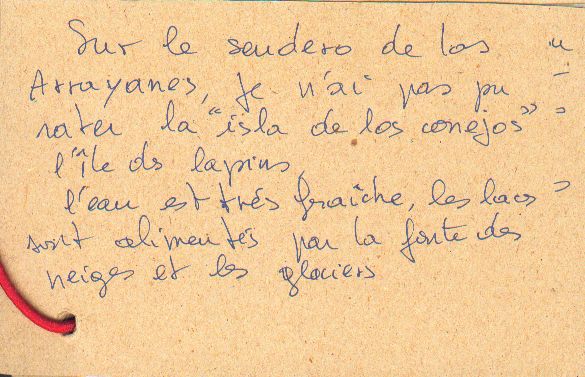 Sur le sendero de los
Arrayanes, je n'ai pas pu
rater la "isla de los conejos"
l'île ds lapins,
l'eau est très fraîche, les lacs
sont alimentés par la fonte des
neiges et les glaciers